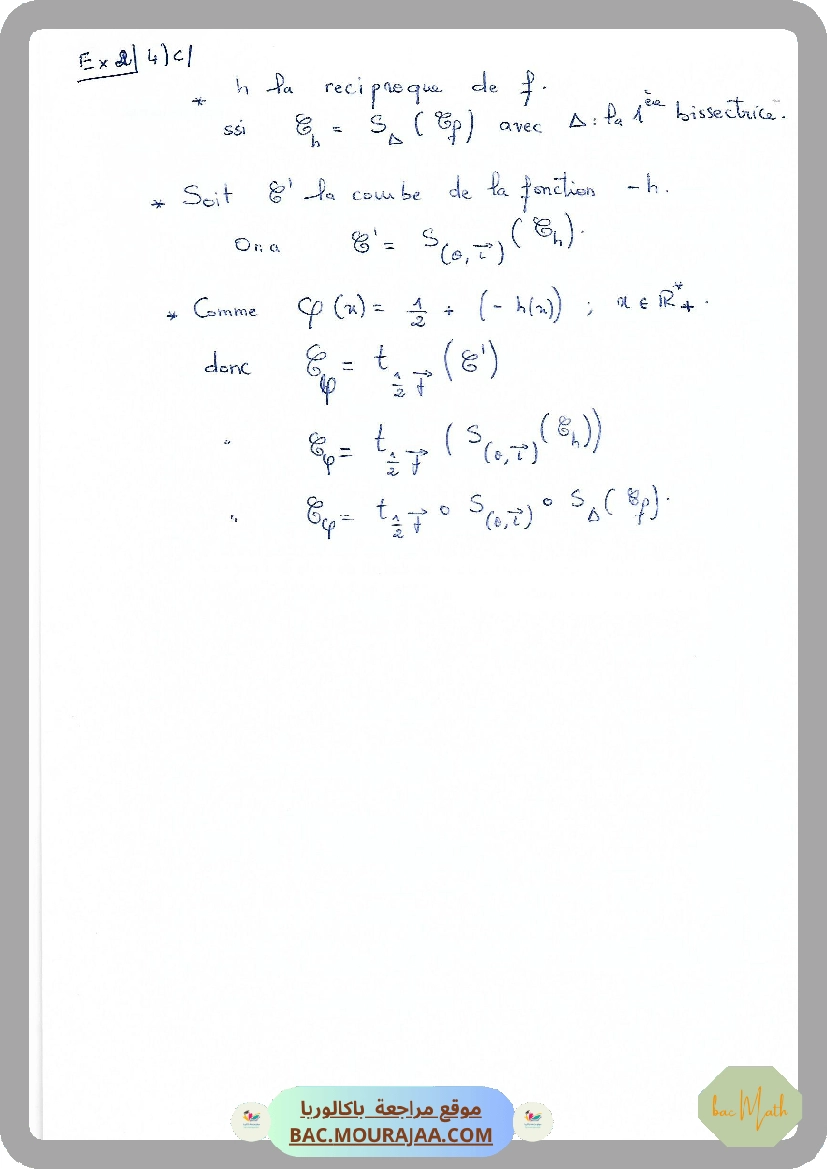 Ex 2) 4) c)
* h la reciproque de f.
ssi 𝒞_h = S_Δ (𝒞_f) avec Δ : la 1ère bissectrice.
* Soit 𝒞' la courbe de la fonction -h.
On a 𝒞' = S_(o, i⃗) (𝒞_h).
* Comme φ(x) = 1/2 + (-h(x)) ; x ∈ ℝ*₊.
donc 𝒞_φ = t_{1/2 j⃗} (𝒞')
" 𝒞_φ = t_{1/2 j⃗} (S_(o, i⃗) (𝒞_h))
" 𝒞_φ = t_{1/2 j⃗} ∘ S_(o, i⃗) ∘ S_Δ (𝒞_f).
موقع مراجعة باكالوريا
BAC.MOURAJAA.COM
bac Math